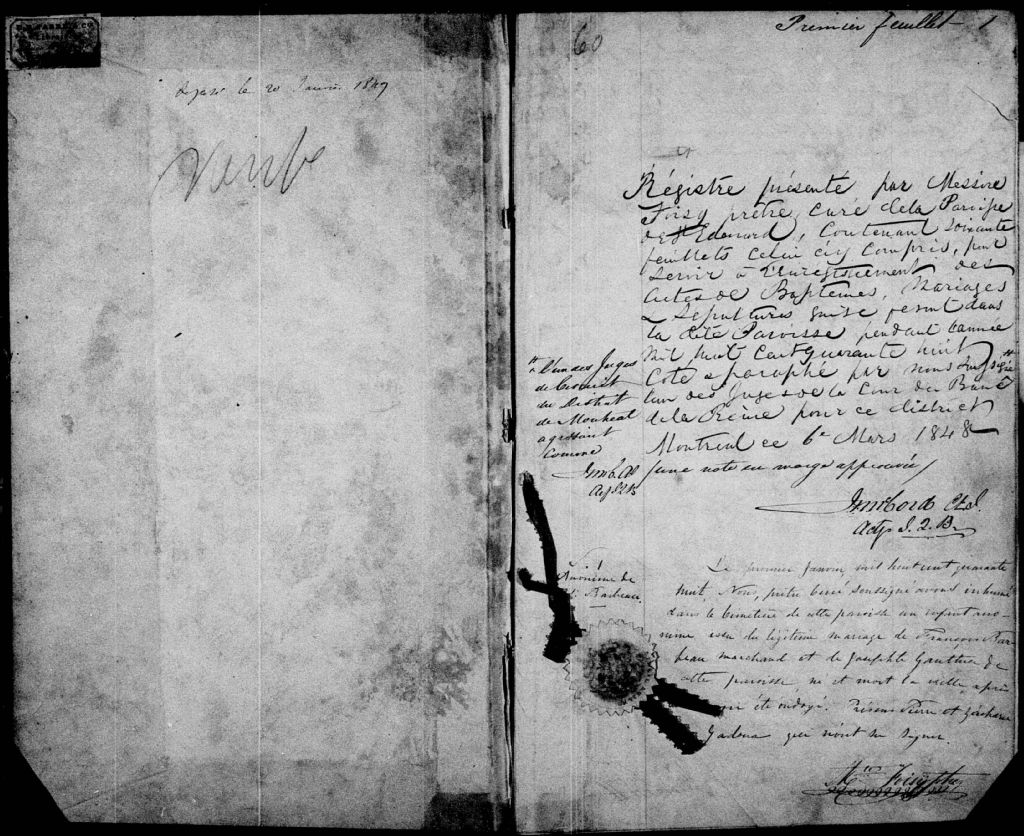 Déposé le 20 Janvier 1849
60
Premier feuillet 1
Régistre présenté par Messire
Foisy prêtre curé dela Paroisse
de St Edouard, Contenant soixante
feuillets celui cÿ compris, pour
servir à l'Enrégistrement des
Actes de Baptêmes, Mariages
& Sépultures qui se feront dans
la dite Paroisse pendant l'année
Mil huit Cent quarante huit
Coté & paraphé par nous soussigné
l'un des Juges de la Cour du Banc
de la Reine pour ce district
Montreal ce 6e Mars 1848
l'un des Juges
de Circuit
du District
de Montreal
agissant
comme
(une note en marge approuvée)
JMcCord C.J.
Actg J. Q. B.
Anonime de
Barbeau
Le premier Janvier, mil huit cent quarante
huit, Nous, prêtre Curé soussigné avons inhumé
dans le Cimetière de cette paroisse un enfant ano-
nime issu du légitime mariage de François Bar-
beau marchand et de Josephte Gauthier de
cette paroisse, né et mort la veille, après
avoir été ondoyé. Présens Pierre et Zacharie
Gadoua qui n'ont su signer.
Foisy ptre